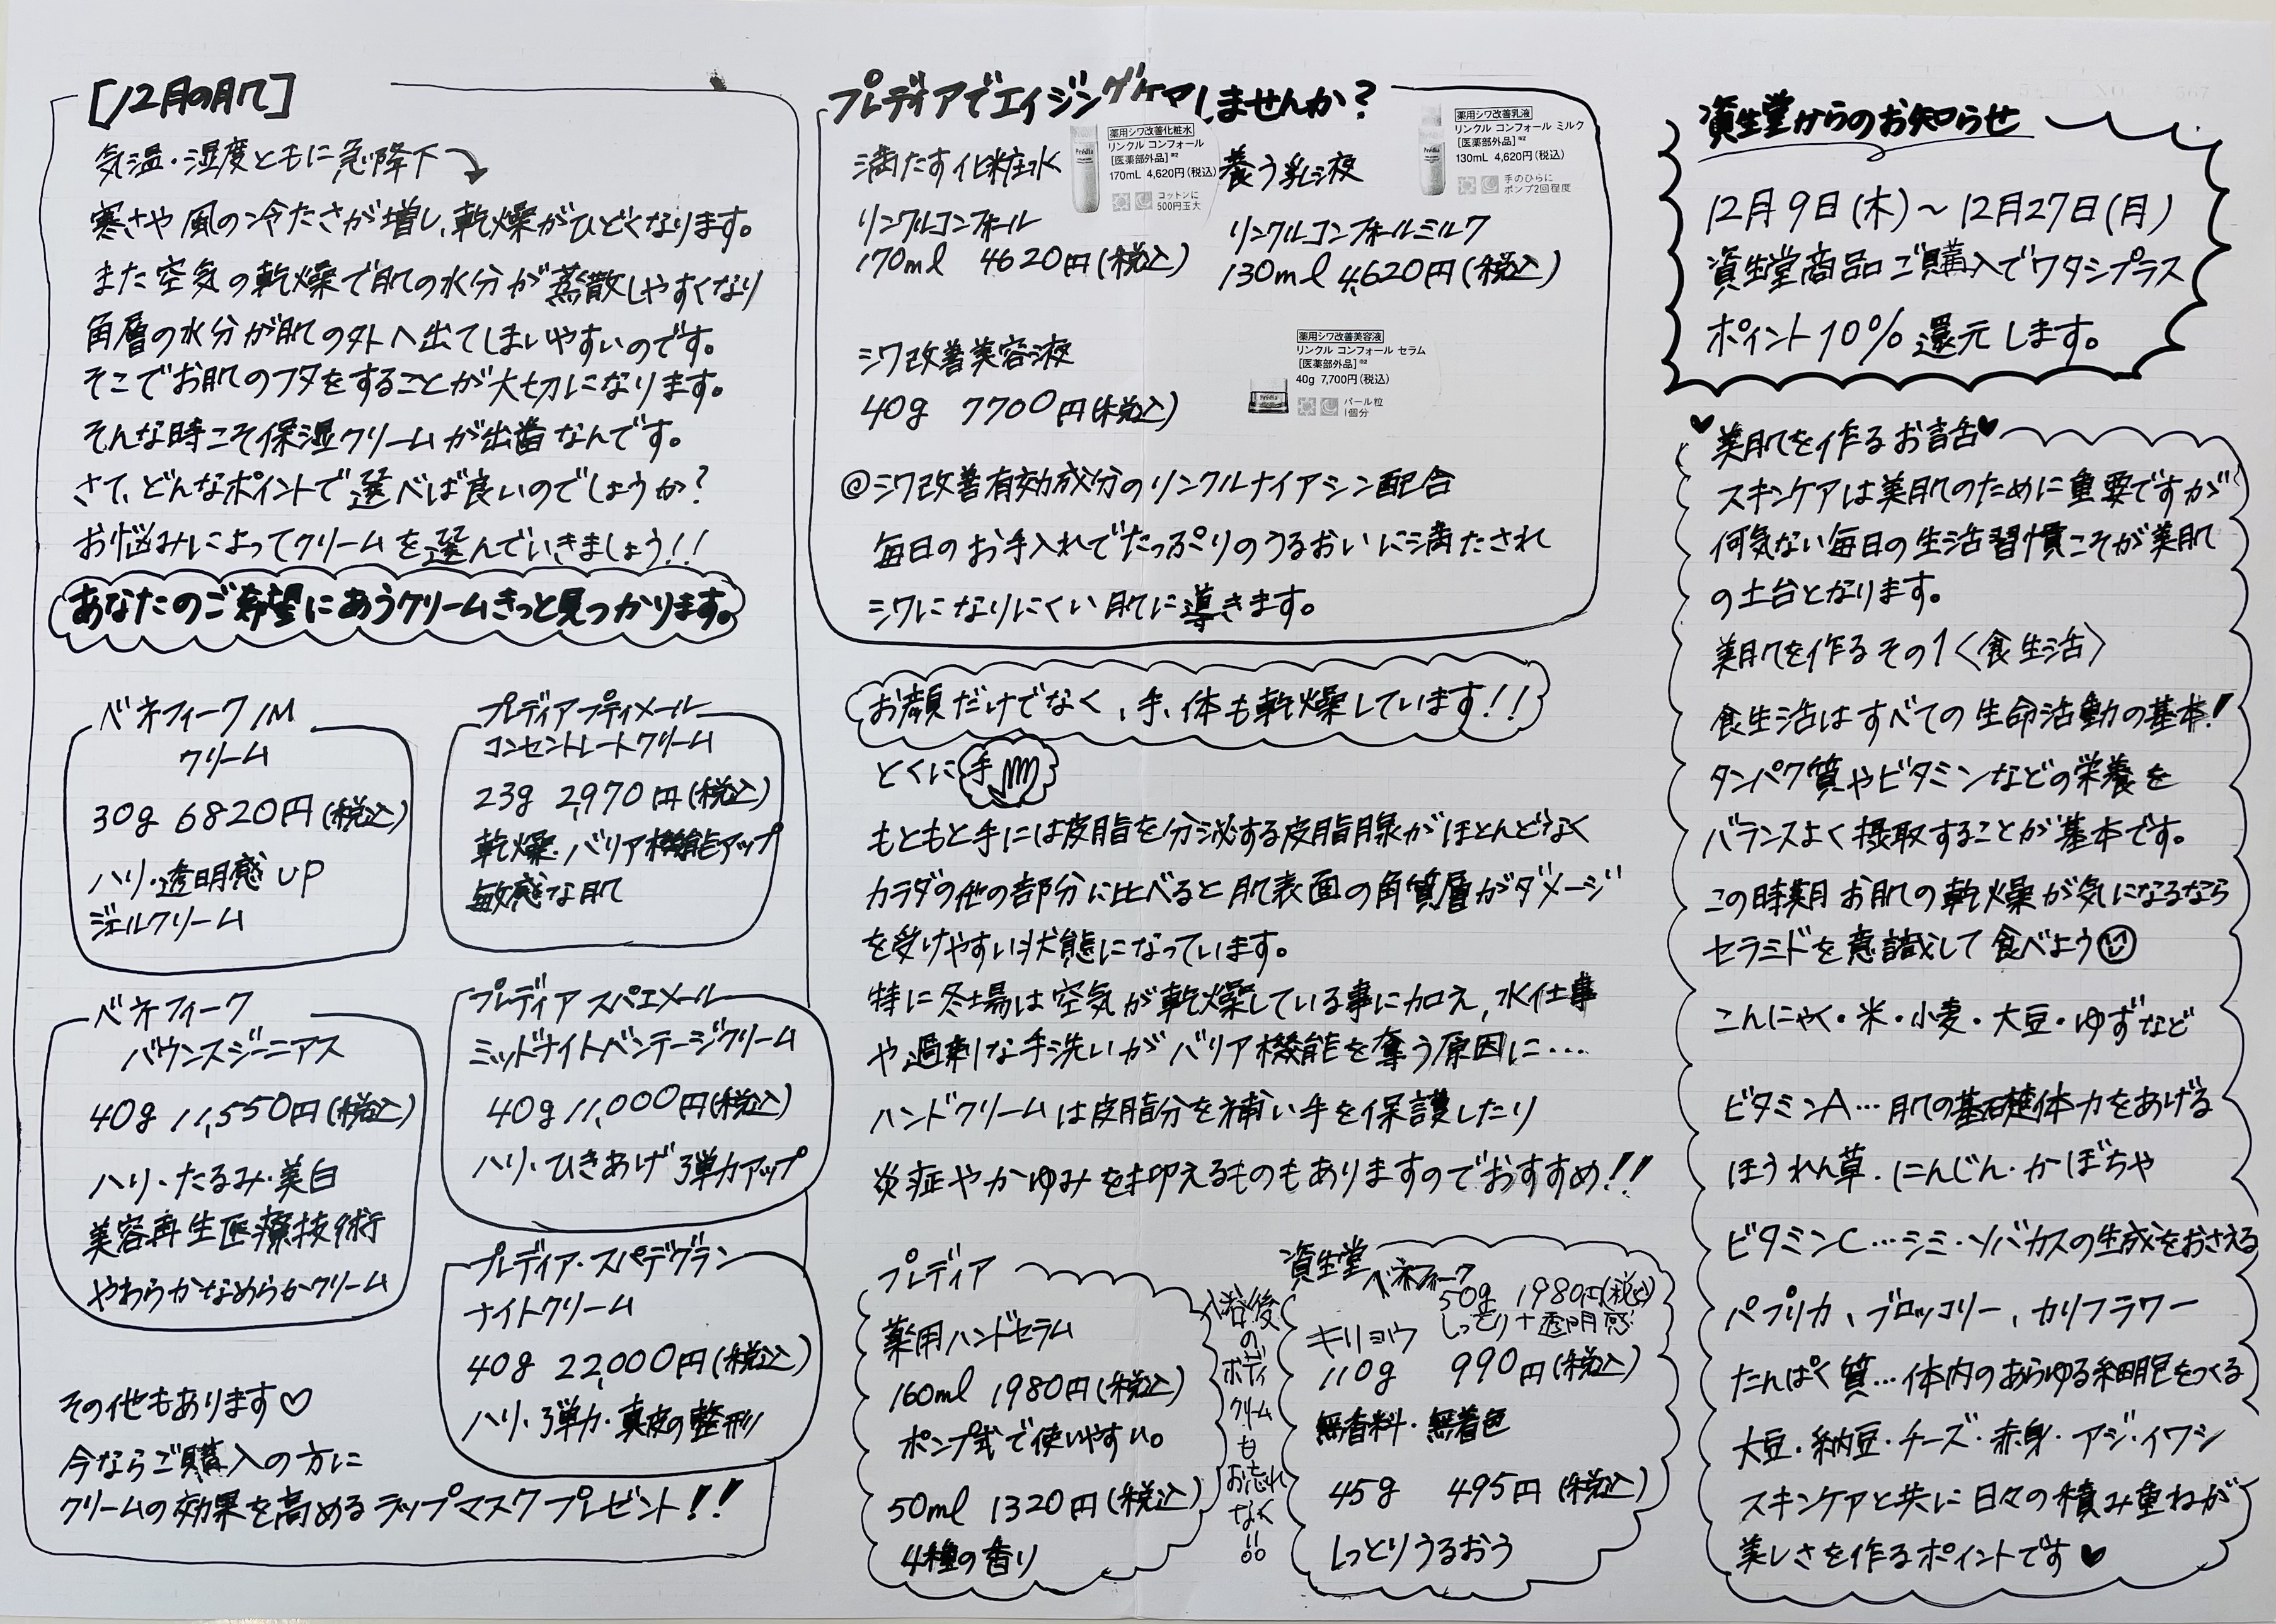 [12月の肌]
気温・湿度ともに急降下
寒さや風の冷たさが増し、乾燥がひどくなります。
また空気の乾燥で肌の水分が蒸散しやすくなり
角層の水分が肌の外へ出てしまいやすいのです。
そこでお肌のフタをすることが大切になります。
そんな時こそ保湿クリームが出番なんです。
さて、どんなポイントで選べば良いのでしょうか?
お悩みによってクリームを選んでいきましょう!!
あなたのご希望にあうクリームきっと見つかります。
ベネフィーク/M
クリーム
30g 6820円(税込)
ハリ・透明感 UP
ジェルクリーム
プレディアプティメール
コンセントレートクリーム
23g 2,970円(税込)
乾燥・バリア機能アップ
敏感な肌
ベネフィーク
バウンスジーニアス
40g 11,550円(税込)
ハリ・たるみ・美白
美容再生医療技術
やわらかなめらかクリーム
プレディア スパエメール
ミッドナイトベンテージクリーム
40g 11,000円(税込)
ハリ・ひきあげ 弾力アップ
プレディア・スパデグラン
ナイトクリーム
40g 22,000円(税込)
ハリ・弾力・真皮の整形
その他もあります♡
今ならご購入の方に
クリームの効果を高めるラップマスクプレゼント!!
プレディアでエイジングケアしませんか?
満たす化粧水
リンクルコンフォール
170ml 4620円(税込)
薬用シワ改善化粧水
リンクル コンフォール
[医薬部外品]※2
170mL 4,620円(税込)
コットンに
500円玉大
養う乳液
リンクルコンフォールミルク
130ml 4,620円(税込)
薬用シワ改善乳液
リンクル コンフォール ミルク
[医薬部外品]※2
130mL 4,620円(税込)
手のひらに
ポンプ2回程度
シワ改善美容液
40g 7700円(税込)
薬用シワ改善美容液
リンクル コンフォール セラム
[医薬部外品]※2
40g 7,700円(税込)
パール粒
1個分
@シワ改善有効成分のリンクルナイアシン配合
毎日のお手入れでたっぷりのうるおいに満たされ
シワになりにくい肌に導きます。
お顔だけでなく、手、体も乾燥しています!!
とくに手
もともと手には皮脂を分泌する皮脂腺がほとんどなく
カラダの他の部分に比べると肌表面の角質層がダメージ
を受けやすい状態になっています。
特に冬場は空気が乾燥している事に加え、水仕事
や過剰な手洗いがバリア機能を奪う原因に…
ハンドクリームは皮脂分を補い手を保護したり
炎症やかゆみを抑えるものもありますのでおすすめ!!
プレディア
薬用ハンドセラム
160ml 1980円(税込)
ポンプ式で使いやすい。
50ml 1320円(税込)
4種の香り
浴後のボディクリームもお忘れなく!!
資生堂
ベネフィーク
50g 1980円(税込)
しっとり+透明感
キリョウ
110g 990円(税込)
無香料・無着色
45g 495円(税込)
しっとりうるおう
資生堂からのお知らせ
12月9日(木)〜12月27日(月)
資生堂商品ご購入でワタシプラス
ポイント10%還元します。
♥美肌を作るお話♥
スキンケアは美肌のために重要ですが
何気ない毎日の生活習慣こそが美肌
の土台となります。
美肌を作るその1〈食生活〉
食生活はすべての生命活動の基本!
タンパク質やビタミンなどの栄養を
バランスよく摂取することが基本です。
この時期お肌の乾燥が気になるなら
セラミドを意識して食べよう
こんにゃく・米・小麦・大豆・ゆずなど
ビタミンA…肌の基礎体力をあげる
ほうれん草・にんじん・かぼちゃ
ビタミンC…シミ・ソバカスの生成をおさえる
パプリカ、ブロッコリー、カリフラワー
たんぱく質…体内のあらゆる細胞をつくる
大豆・納豆・チーズ・赤身・アジ・イワシ
スキンケアと共に日々の積み重ねが
美しさを作るポイントです♥